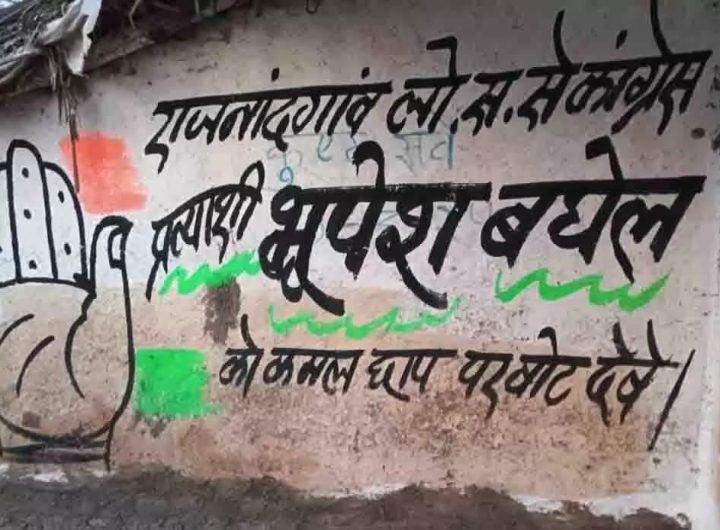 राजनांदगांव लो.स.से कांग्रेस
प्रत्याशी भूपेश बघेल
को कमल छाप पर वोट देवे।